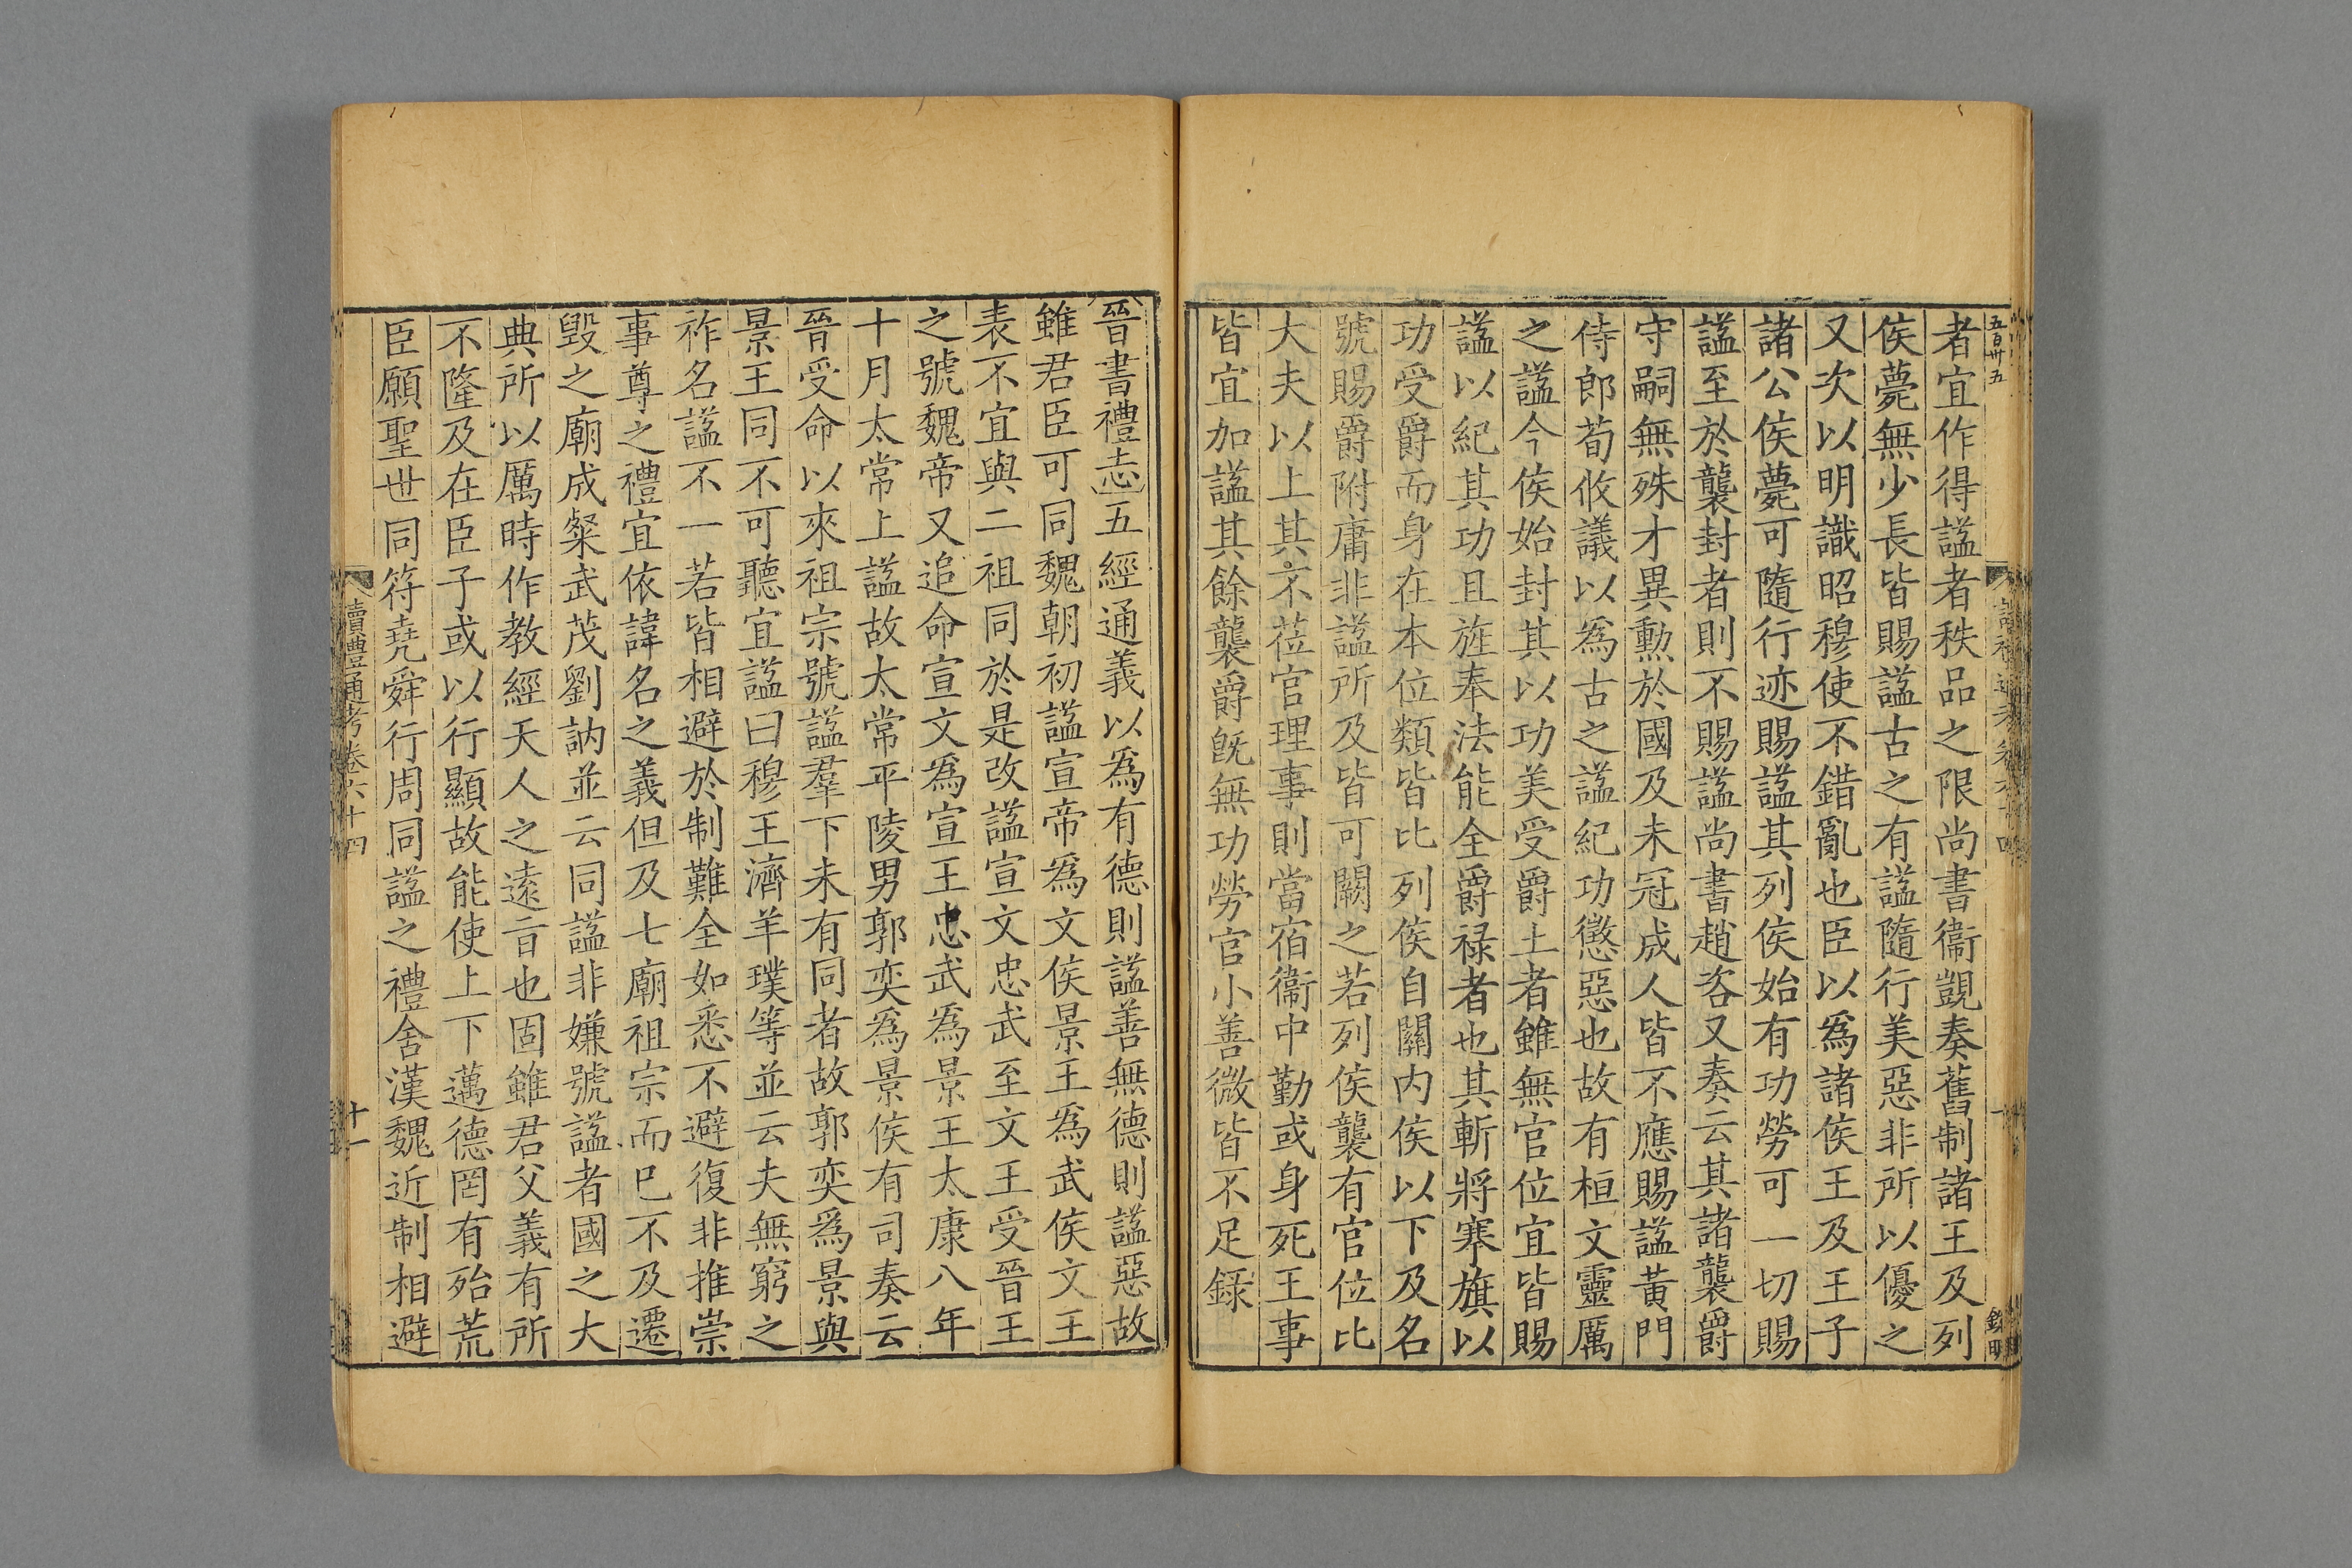 五百卅五
者宜作得諡者秩品之限尚書衞覬奏舊制諸王及列
侯薨無少長皆賜諡古之有諡隨行美惡非所以優之
又次以明識昭穆使不錯亂也臣以爲諸侯王及王子
諸公侯薨可隨行迹賜諡其列侯始有功勞可一切賜
諡至於襲封者則不賜諡尚書趙咨又奏云其諸襲爵
守嗣無殊才異勲於國及未冠成人皆不應賜諡黃門
侍郎荀攸議以爲古之諡紀功懲惡也故有桓文靈厲
之諡今侯始封其以功美受爵土者雖無官位宜皆賜
諡以紀其功且旌奉法能全爵禄者也其斬將搴旗以
功受爵而身在本位類皆比列侯自關内侯以下及名
號賜爵附庸非諡所及皆可闕之若列侯襲有官位比
大夫以上其不莅官理事則當宿衞中勤或身死王事
皆宜加諡其餘襲爵旣無功勞官小善微皆不足録
晉書禮志五經通義以爲有德則諡善無德則諡惡故
雖君臣可同魏朝初諡宣帝爲文侯景王爲武侯文王
表不宜與二祖同於是改諡宣文忠武至文王受晉王
之號魏帝又追命宣文爲宣王忠武爲景王太康八年
十月太常上諡故太常平陵男郭奕爲景侯有司奏云
晉受命以來祖宗號諡羣下未有同者故郭奕爲景與
景王同不可聽宜諡曰穆王濟羊璞等並云夫無窮之
祚名諡不一若皆相避於制難全如悉不避復非推崇
事尊之禮宜依諱名之義但及七廟祖宗而巳不及遷
毀之廟成粲武茂劉訥並云同諡非嫌號諡者國之大
典所以厲時作教經天人之遠㫖也固雖君父義有所
不隆及在臣子或以行顯故能使上下邁德罔有殆荒
臣願聖世同符堯舜行周同諡之禮舍漢魏近制相避
讀禮通考卷六十四
十一